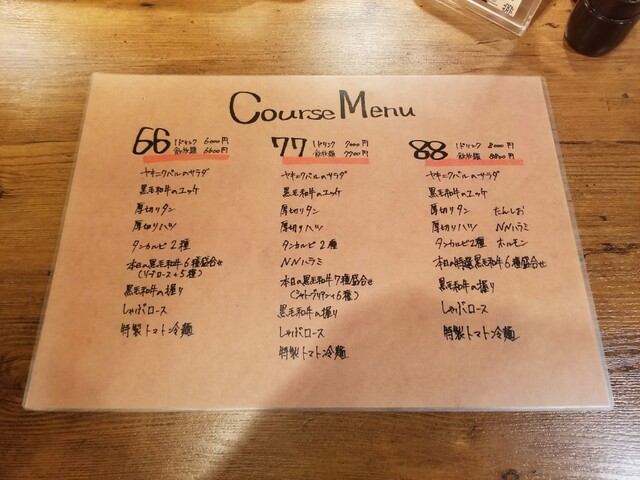 Course Menu
66 1ドリンク 6000円
飲放題 6600円
ヤキニクバルのサラダ
黒毛和牛のユッケ
厚切りタン
厚切りハツ
タンカルビ 2種
本日の黒毛和牛6種盛合せ
(リブロース+5種)
黒毛和牛の握り
しゃぶロース
特製トマト冷麺
77 1ドリンク 7000円
飲放題 7700円
ヤキニクバルのサラダ
黒毛和牛のユッケ
厚切りタン
厚切りハツ
タンカルビ 2種
NNハラミ
本日の黒毛和牛7種盛合せ
(シャトーブリアン+6種)
黒毛和牛の握り
しゃぶロース
特製トマト冷麺
88 1ドリンク 8000円
飲放題 8800円
ヤキニクバルのサラダ
黒毛和牛のユッケ
厚切りタン たんしお
厚切りハツ NNハラミ
タンカルビ2種 ホルモン
本日の特選黒毛和牛6種盛合せ
黒毛和牛の握り
しゃぶロース
特製トマト冷麺